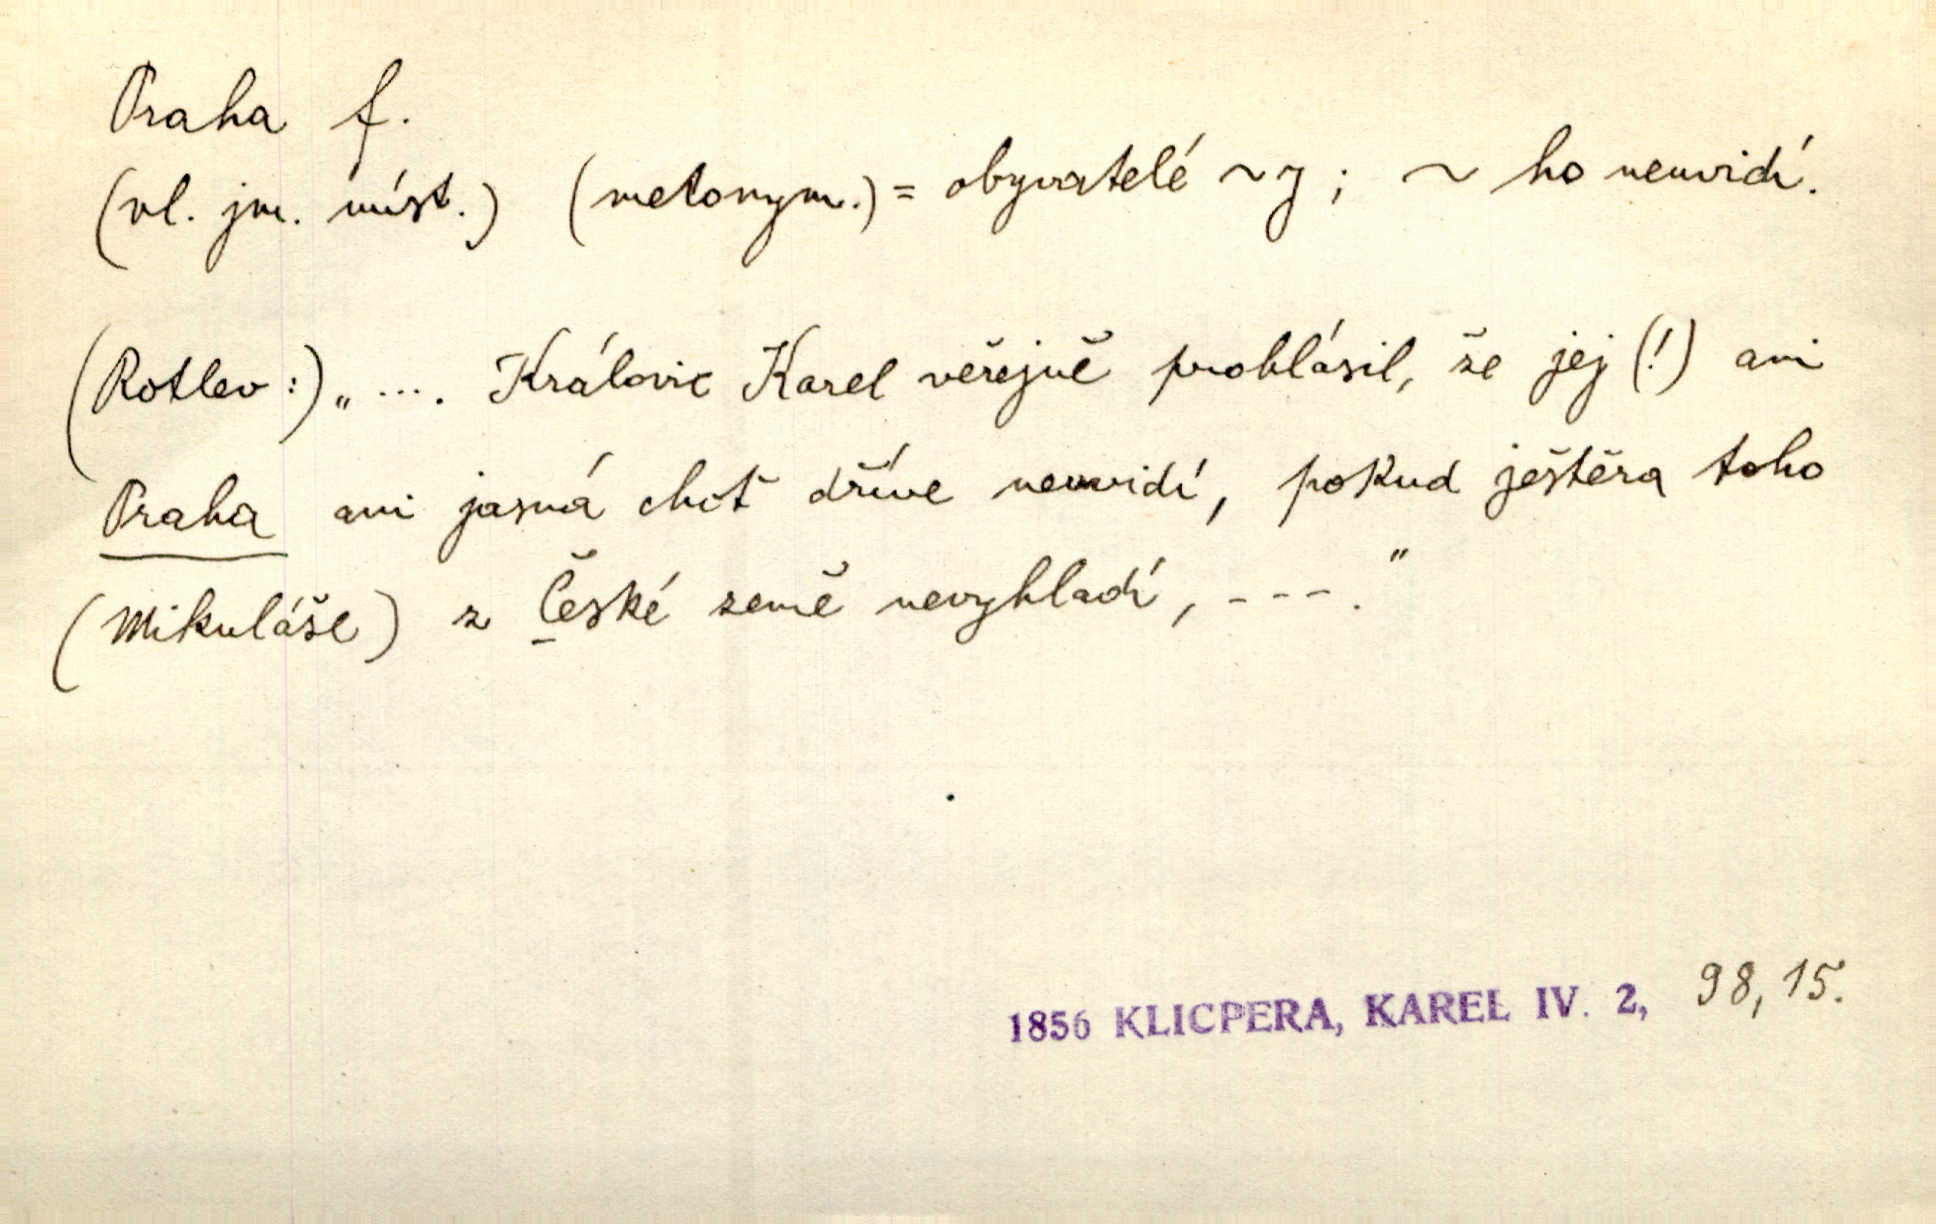 Praha f.
(vl. jm. míst.) (metonym.) = obyvatelé ~y ; ~ ho neuvidí.
(Rotlev :) „ .... Královic Karel veřejně prohlásil, že jej (!) ani
Praha ani jasná choť dříve neuvidí, pokud ještěra toho
(Mikuláše) z České země nevyhladí, - - - ."
1856 KLICPERA, KAREL IV. 2, 98, 15.